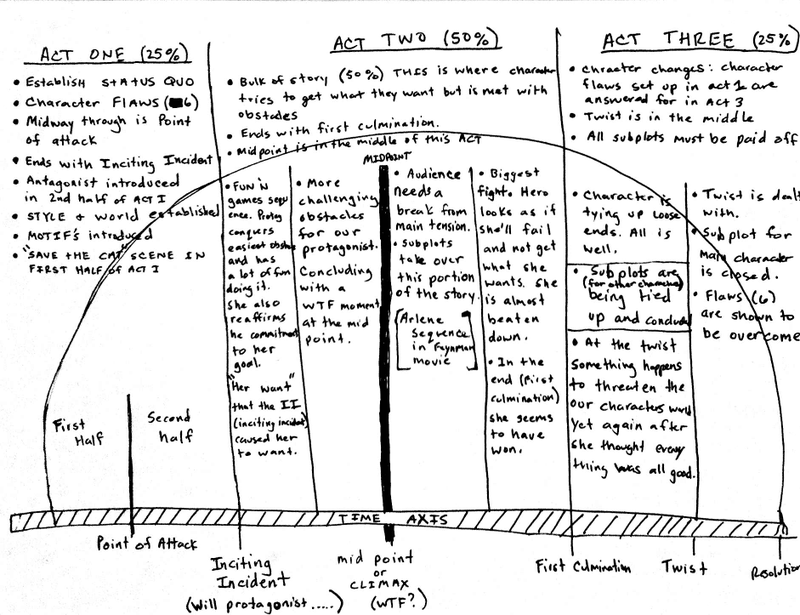 ACT ONE (25%)
• Establish STATUS QUO
• Character FLAWS (6)
• Midway through is Point
of attack
• Ends with Inciting Incident
• Antagonist introduced
in 2nd half of ACT I
• STYLE & world established
• MOTIF's introduced
• "SAVE THE CAT" SCENE IN
FIRST HALF of ACT I
First
Half
Second
half
ACT TWO (50%)
• Bulk of story (50%) THIS is where character
tries to get what they want but is met with
obstacles
• Ends with first culmination.
• Midpoint is in the middle of this ACT
MIDPOINT
• FUN 'N
games sequ
ence. Protag
conquers
easiest obstacle
and has
a lot of fun
doing it.
She also
reaffirms
he commitment
to her
goal.
"Her want"
that the II
(inciting incident)
caused her
to want.
• More
challenging
obstacles
for our
protagonist.
Concluding
with a
WTF moment
at the mid
point.
• Audience
needs a
break from
main tension.
• subplots
take over
this portion
of the story.
[Arlene
Sequence
in Feynman
movie]
• Biggest
fight. Hero
looks as if
she'll fail
and not get
what she
wants. She
is almost
beaten
down.
• In the
end (first
culmination)
she seems
to have
won.
ACT THREE (25%)
• Chracter changes: character
flaws set up in act 1 are
answered for in ACT 3
• Twist is in the middle
• All subplots must be paid off
• Character is
tying up loose
ends. All is
well.
• Subplots are
(for other characters)
being tied
up and conclude
• At the twist
Something happens
to threaten the
our characters world
yet again after
she thought every
thing was all good.
• Twist is dealt
with.
• Subplot for
Main character
is closed.
• Flaws (6)
are shown to
be overcome
TIME AXIS
Point of Attack
Inciting
Incident
(Will protagonist.....)
mid point
or
CLIMAX
(WTF?)
First Culmination
Twist
Resolution